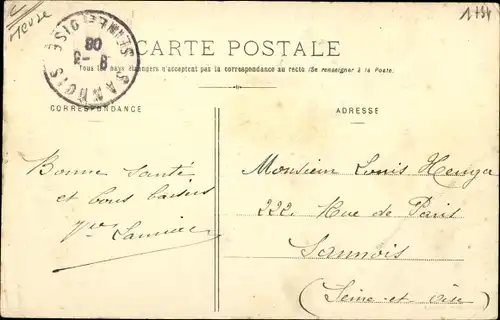 Meuse
1434
CARTE POSTALE
Tous les pays étrangers n'acceptent pas la correspondance au recto (Se renseigner à la Poste.
SANNOIS
SEINE-ET-OISE
8-3
08
CORRESPONDANCE
ADRESSE
Bonne Santé
et bons baisers
Vve
Monsieur Louis
222 Rue de Paris
Sannois
(Seine-et-Oise